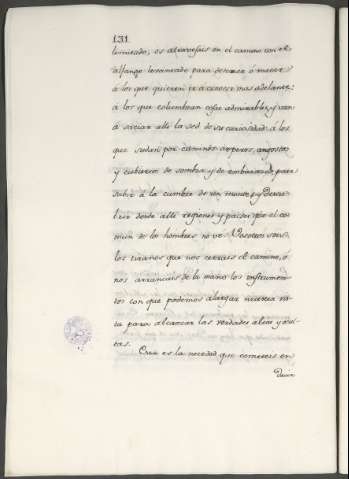 131
terminado, os atravesais en el camino con el
alfange levantado para detener ó matar
á los que quieren ir á conocer mas adelante:
á los que columbran cosas admirables, y van
á saciar alli la sed de su curiosidad: á los
que sudan por caminos asperos, angostos
y cubiertos de sombra y de embarazos, para
subir á la cumbre de un monte, y descu-
brir desde alli regiones y paises que el co-
mun de los hombres no ve. Vosotros sois
los tiranos que nos cerrais el camino, ó
nos arrancais de la mano los instrumen-
tos con que podemos alargar nuestra vis-
ta para alcanzar las verdades altas y ocul-
tas.
Cual es la necedad que cometeis en
decir